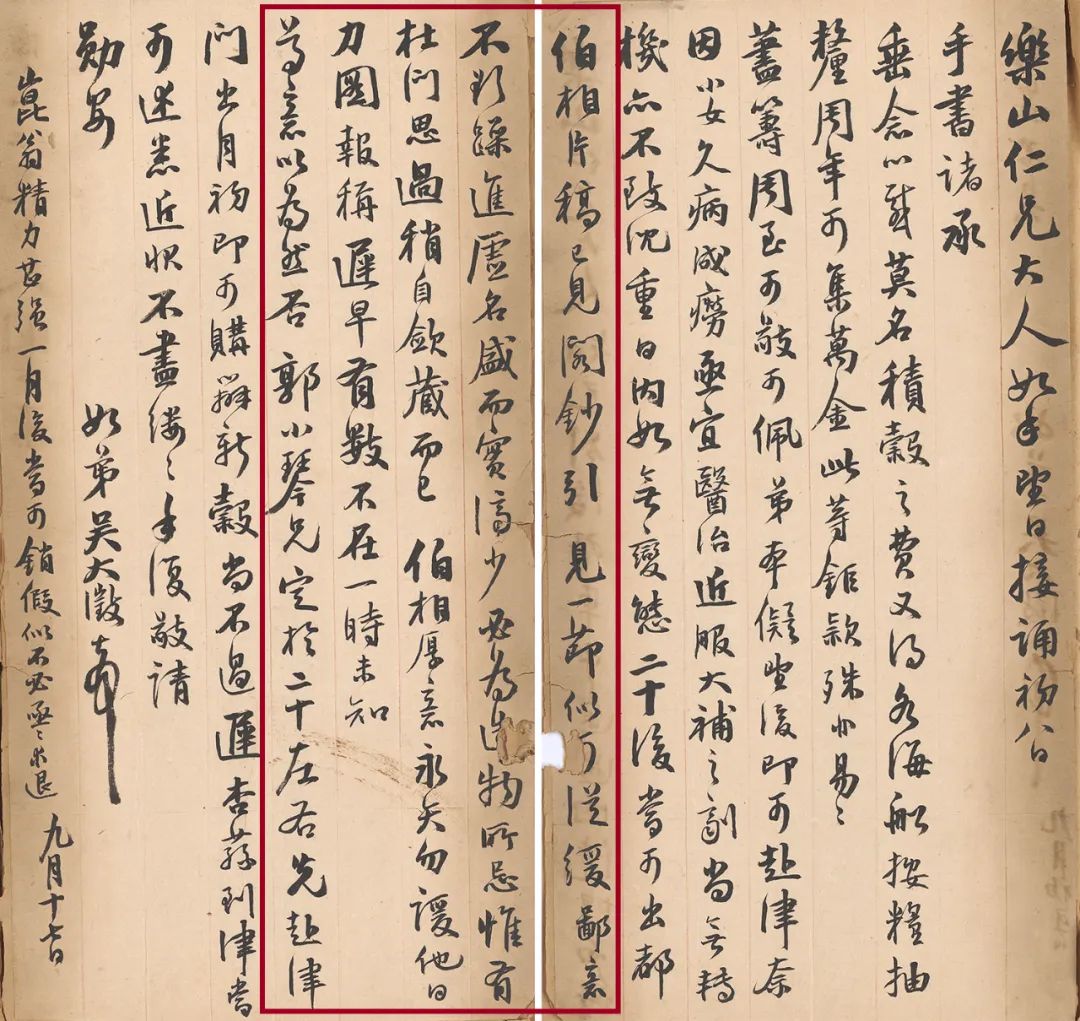 樂山仁兄大人如手望日接誦初八日
手書諸承
垂念心感莫名積穀之費又得各海船按糧抽
釐周年可集萬金此等鉅款殊非易易
蓋籌周至可敬可佩弟本儗望後即可赴津奈
因小女久病成癆亟宜醫治近服大補之劑尚無轉
機亦不致沈重日內如無變態二十後當可出都
伯相片稿已見閣鈔引見一節似可從緩鄙意
不欲躁進虛名盛而實濟少必為造物所忌惟有
杜門思過稍自斂藏而已 伯相厚意永矢勿諼他日
力圖報稱遲早有數不在一時未知
尊意以為然否 郭小琴兄定於二十左右先赴津
門出月初即可購辦新穀尚不過遲杏蓀到津當
可述悉近狀不盡縷縷手復敬請
勛安 如弟吳大澂頓首
崑翁精力甚強一月後當可銷假似不必亟亟求退 九月十七日